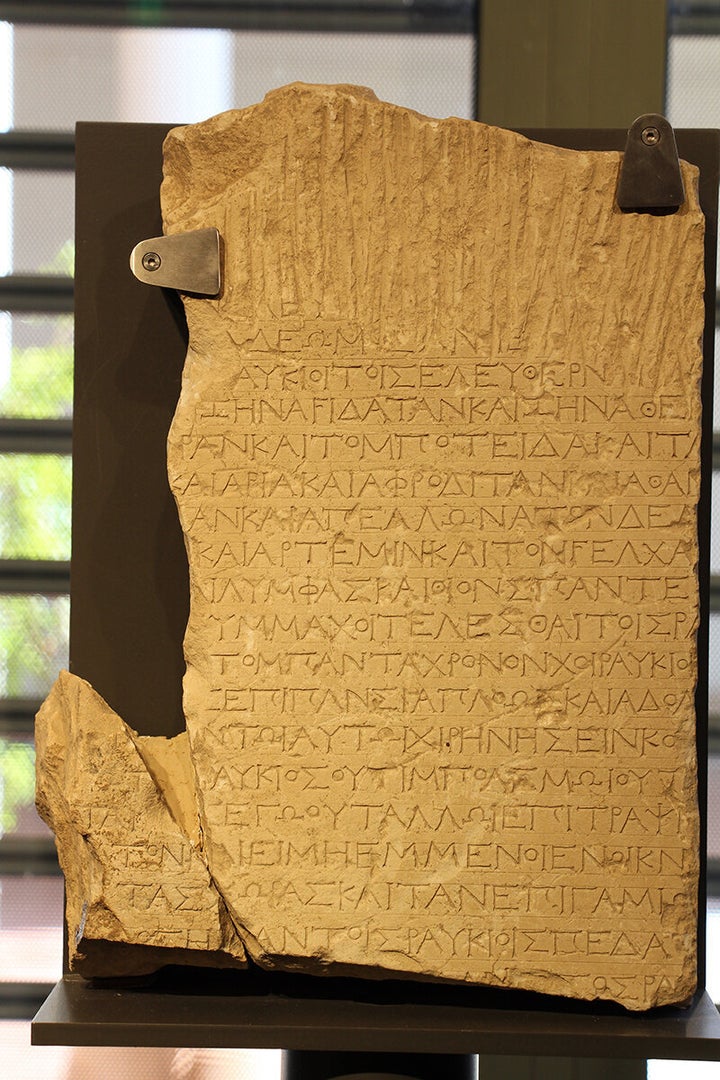 ΑΥΚΙΟΙΤΟΙΣΕΛΕΥΘΕΡΝ
ΤΗΝΑϜΙΔΑΤΑΝΚΑΙΤΗΝΑΘΕ
ΡΑΝΚΑΙΤΟΜΠΟΤΕΙΔΑΚΑΙΤΑ
ΚΑΙΑΡΙΑΚΑΙΑΦΡΟΔΙΤΑΝΚΑΙΑΘΑΝ
ΑΝΚΑΙΑΠΕΛΛΩΝΑΤΟΝΔΕΛ
ΚΑΙΑΡΤΕΜΙΝΚΑΙΤΟΝϜΕΛΧΑ
ΙΛΥΜΦΑΣΚΑΙΘΙΟΝΣΠΑΝΤΕ
ΥΜΜΑΧΟΙΤΕΛΕΣΘΑΙΤΟΙΣΡΑ
ΤΟΜΠΑΝΤΑΧΡΟΝΟΝΧΟΙΡΑΥΚΙΟΙ
ΣΕΠΙΠΑΝΣΙΑΠΛΟΩΣΚΑΙΑΔΟΛ
ΝΤΩΙΑΥΤΩΙΧΙΡΗΝΗΣΕΙΝΚΟ
ΑΥΚΙΟΣΟΥΤΙΜΠΟΛΕΜΩΙΟΥΤ
ΕΓΩΟΥΤΑΛΛΩΙΕΠΙΤΡΑΨ
ΤΩΝΚΑΙΕΙΜΗΕΜΜΕΝΟΙΕΝΟΙΚΝ
ΤΑΣΧΩΡΑΣΚΑΙΤΑΝΕΠΙΓΑΜΙ
ΑΝΤΟΙΣΡΑΥΚΙΟΙΣΠΕΔΑ